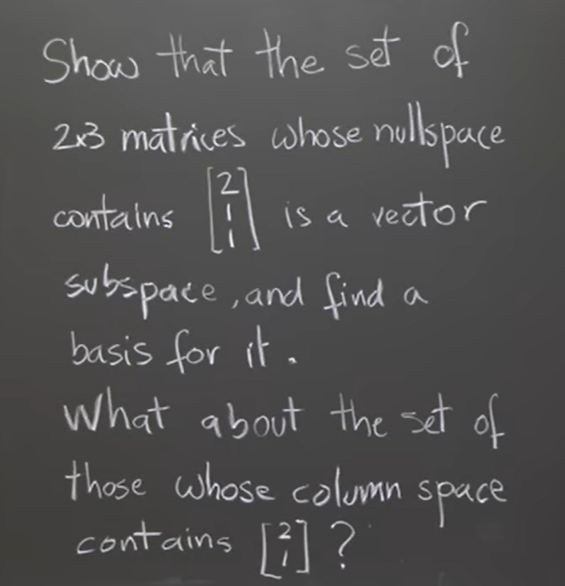 Show that the set of
2x3 matrices whose nullspace
contains [2 1 1] is a vector
subspace, and find a
basis for it.
What about the set of
those whose column space
contains [2 1] ?